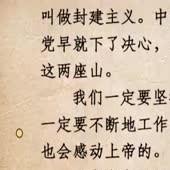 叫做封建主义。中
党早就下了决心，
这两座山。
我们一定要坚
一定要不断地工作
也会感动上帝的。